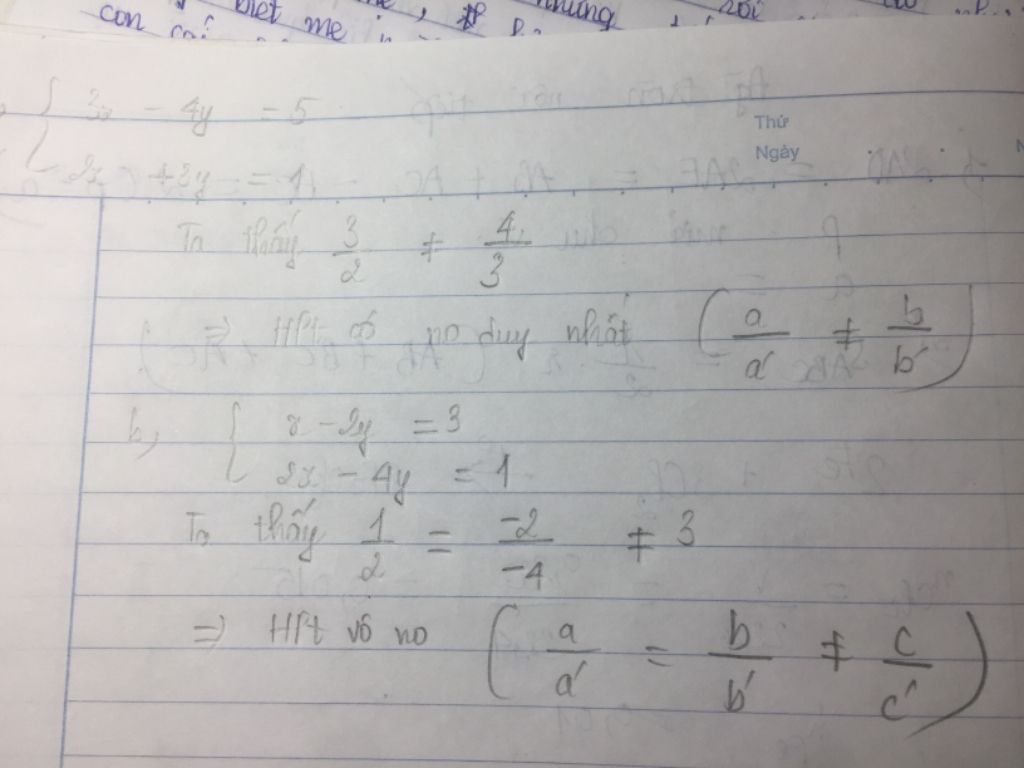 con biết mẹ những
3x - 4y = 5
Thứ
Ngày
2x + 3y = 1
Ta thấy 3/2 ≠ 4/3
=> HPt có no duy nhất (a/a' ≠ b/b')
b, { x - 2y = 3
2x - 4y = 1
Ta thấy 1/2 = -2/-4 ≠ 3
=> HPt vô no (a/a' = b/b' ≠ c/c')